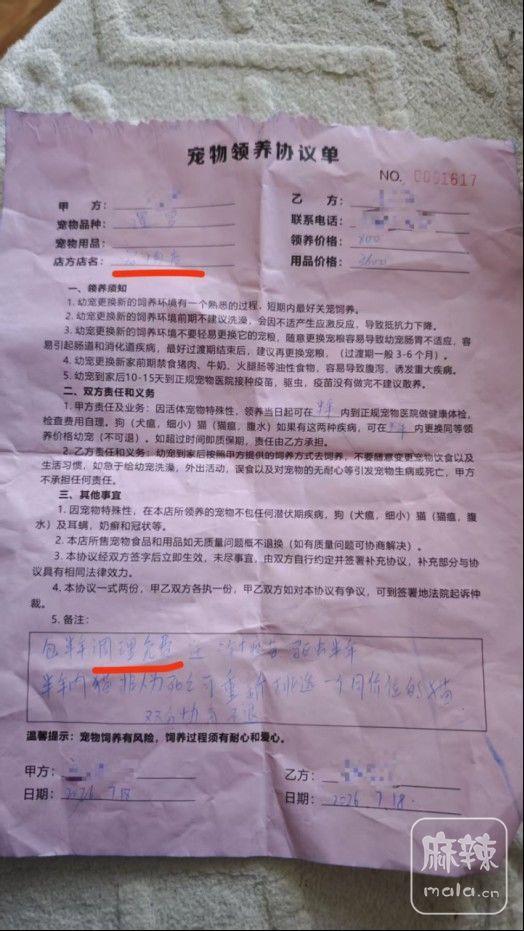 宠物领养协议单
NO. 0001617
甲 方：
乙 方：
宠物品种：
联系电话：
宠物用品：
领养价格：800
店方店名：
用品价格：3600
一、领养须知
1. 幼宠更换新的饲养环境有一个熟悉的过程，短期内最好关笼饲养。
2. 幼宠更换新的饲养环境前期不建议洗澡，会因不适产生应激反应，导致抵抗力下降。
3. 幼宠更换新的饲养环境不要轻易更换它的宠粮，随意更换宠粮容易导致幼宠肠胃不适应，容
易引起肠道和消化道疾病，最好过渡期结束后，建议再更换宠粮，（过渡期一般 3-6 个月）。
4. 幼宠更换新家前期禁食猪肉、牛奶、火腿肠等油性食物，容易导致腹泻、诱发重大疾病。
5. 幼宠到家后10-15天到正规宠物医院接种疫苗，驱虫，疫苗没有做完不建议散养。
二、双方责任和义务
1. 甲方责任及业务：因活体宠物特殊性，领养当日起可在半年内到正规宠物医院做健康体检，
检查费用自理。狗（犬瘟，细小）猫（猫瘟，腹水）如果有这两种疾病，可在半年内更换同等领
养价格幼宠（不可退）。如超过时间如质保期，责任由乙方承担。
2. 乙方责任和义务：幼宠到家后按照甲方提供的饲养方式去饲养，不要随意变更宠物饮食以及
生活习惯，如急于给幼宠洗澡，外出活动，误食以及对宠物的无耐心等引发宠物生病或死亡，甲方
不承担任何责任。
三、其他事宜
1. 因宠物特殊性，在本店所领养的宠物不包任何潜伏期疾病，狗（犬瘟，细小）猫（猫瘟，腹
水）及耳螨、奶癣和冠状等。
2. 本店所售宠物食品和用品如无质量问题概不退换（如有质量问题可协商解决）。
3. 本协议经双方签字后立即生效，未尽事宜，由双方自行约定并签署补充协议，补充部分与协
议具有相同法律效力。
4. 本协议一式两份，甲乙双方各执一份，甲乙双方如对本协议有争议，可到签署地法院起诉仲
裁。
5. 备注：
包半年调理免费 半年
半年内猫非人为死亡可重新挑选一个同价位的猫
双方协商
温馨提示：宠物饲养有风险，饲养过程须有耐心和爱心。
甲方：
乙方：
日期：2026.7.18
日期：2026.7.18.
麻辣
mala.cn